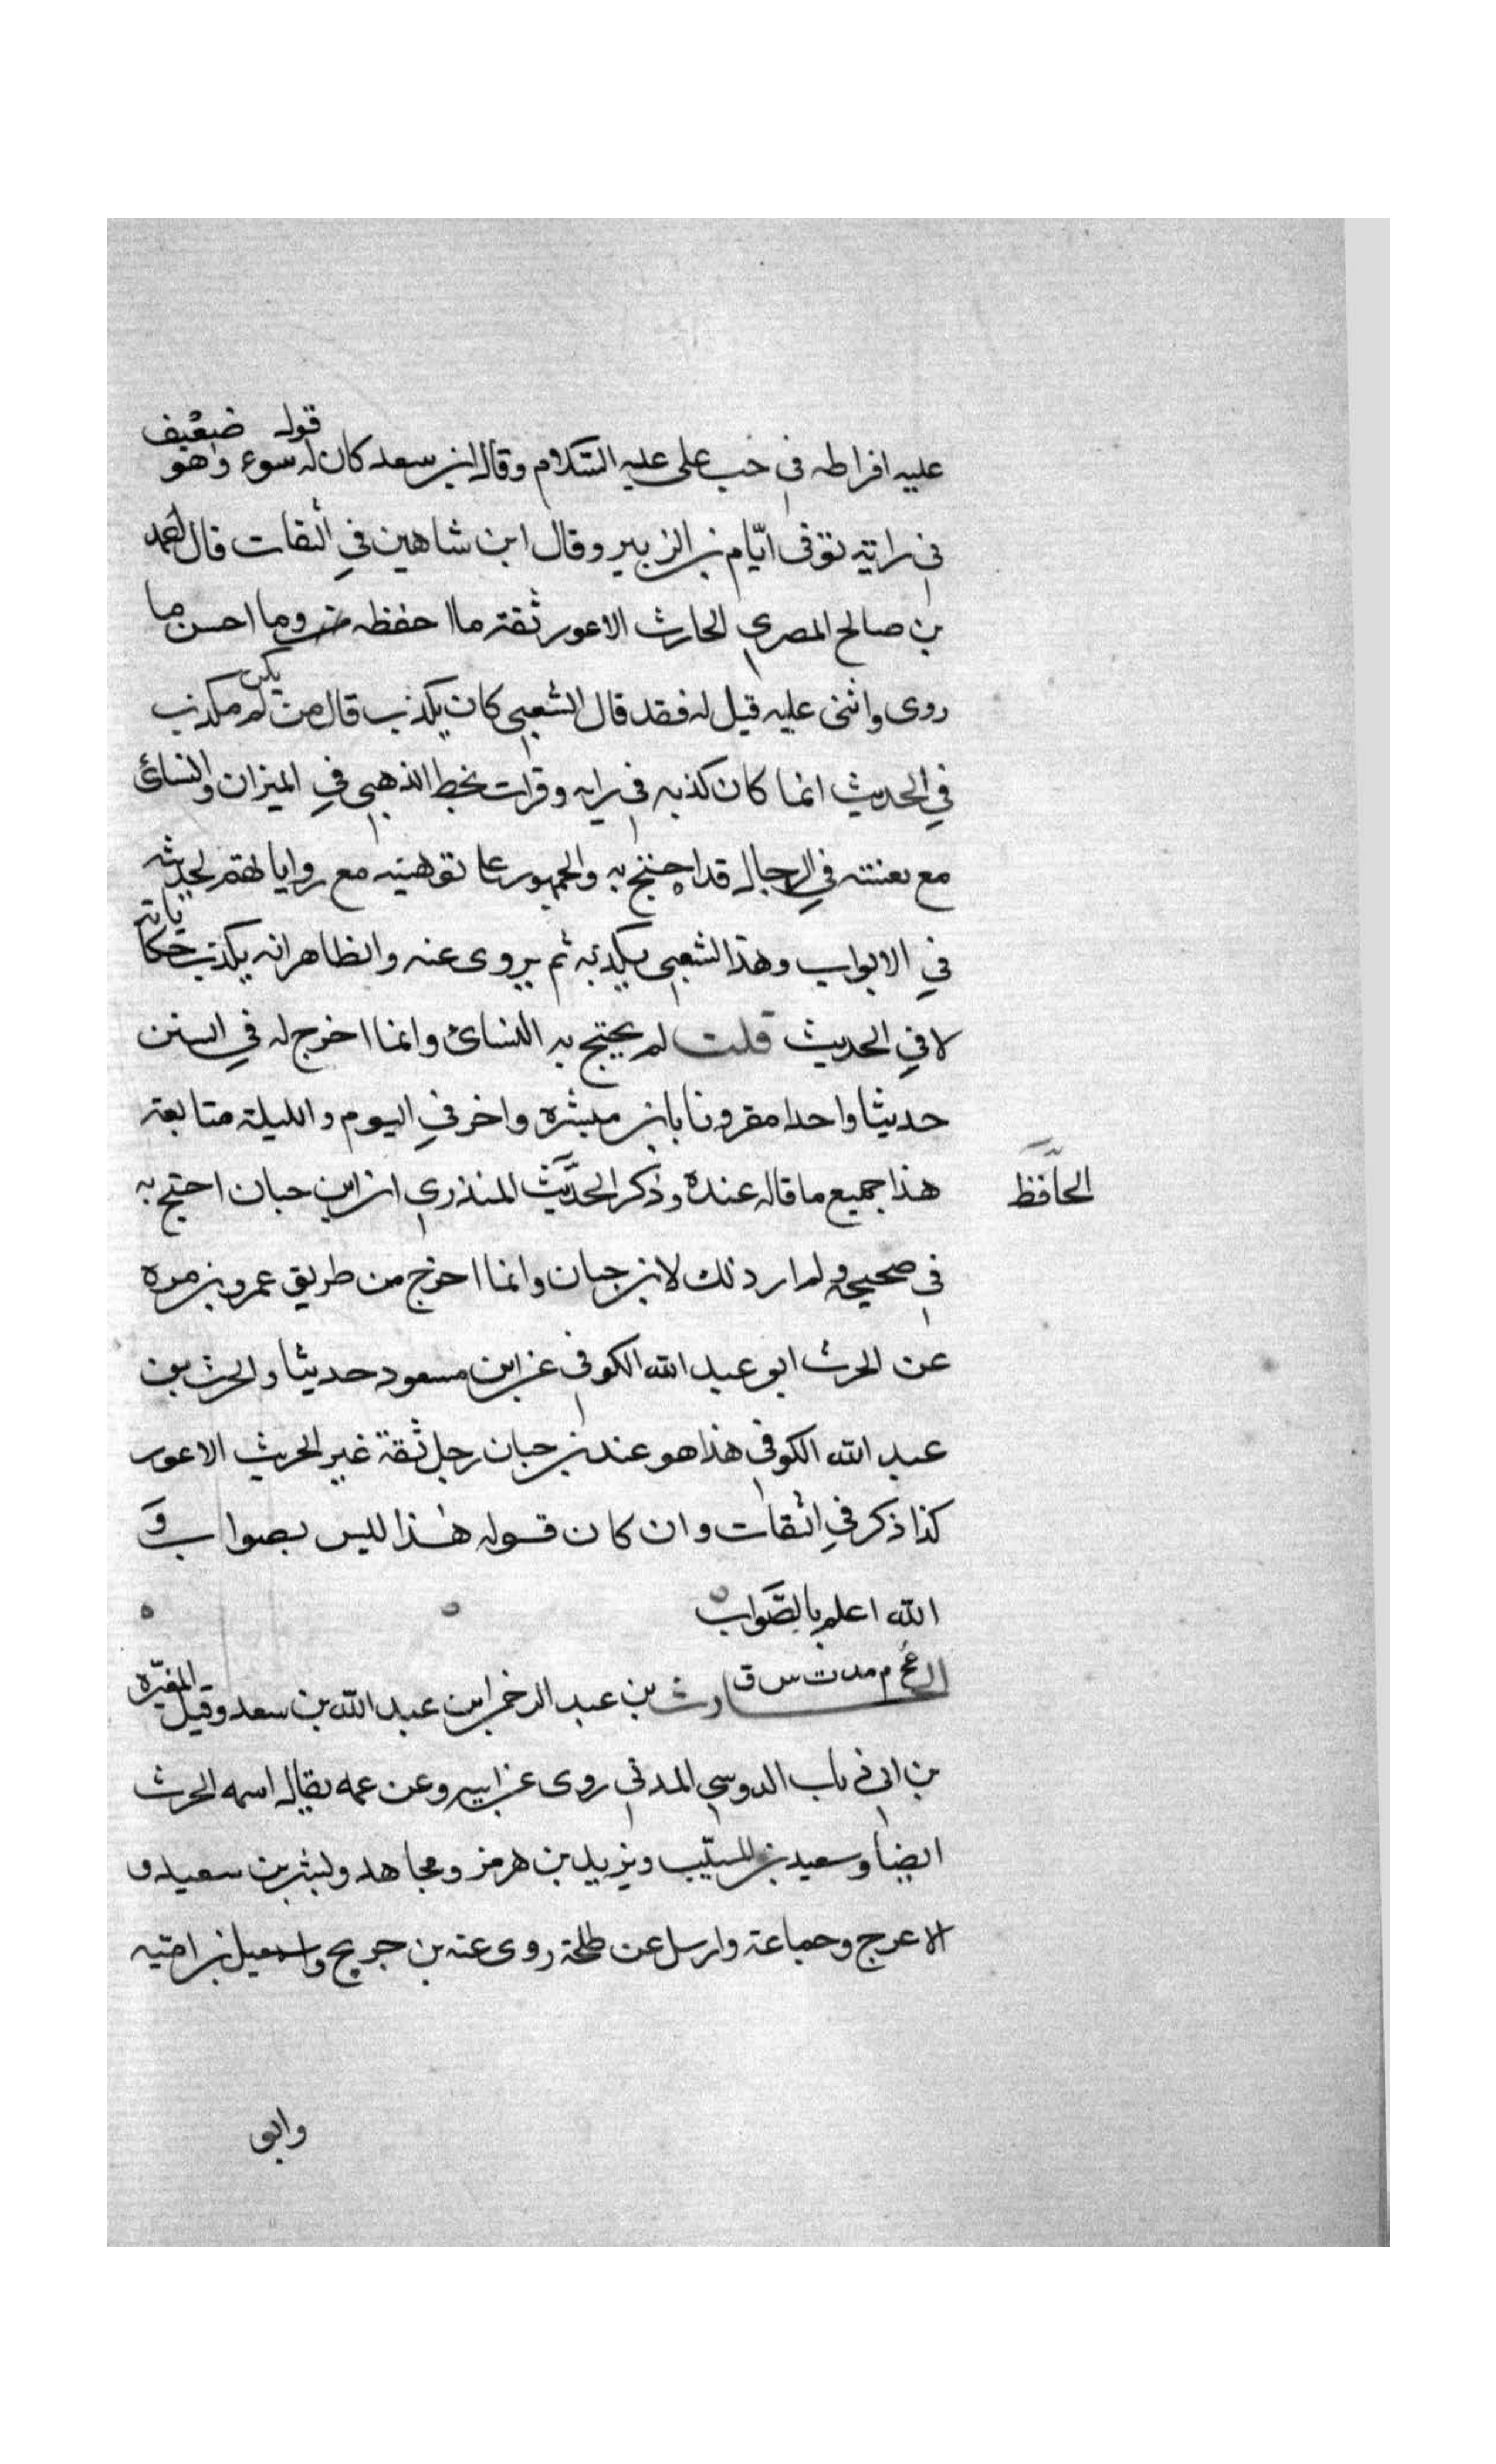 عليه افراطه في حب على عليه السّلام وقال ابن سعد كان له قوله سوء وهو ضعيف
في رايته توفى ايّام بن الزبير وقال ابن شاهين في الثقات قال احمد
بن صالح المصري الحارث الاعور ثقة ما احفظه وما احسن ما
روى واثنى عليه قيل له فقد قال الشعبي كان يكذب قال من لم يكن مكذب
في الحديث انما كان كذبه في رايه وقرات بخط الذهبي في الميزان والنسائ
مع تعنته في الرجال قد احتج به والجمهور على توهينه مع رواياتهم لحديثه
في الابواب وهذا الشعبي يكذبه ثم يروى عنه والظاهر انه يكذب حكاياته
لا في الحديث قلت لم يحتج به النسائ وانما اخرج له في السنن
حديثا واحدا مقرونا بابن ميسره واخر في اليوم والليلة متابعة
هذا جميع ما قاله عنده وذكر المحدّث المنذري ان ابن حبان احتج به
الحافظ
في صحيحه ولم ار ذلك لابن حبان وانما اخرج من طريق عمرو بن مره
عن الحرث ابو عبد الله الكوفي عن ابن مسعود حديثا والحرث بن
عبد الله الكوفي هذا هو عند بن حبان رجل ثقة غير الحريث الاعور
كذا ذكر في الثقات وان كان قوله هذا ليس بصواب وَ
الله اعلم بالصَّواب
م مد ت س ق
الحارث بن عبد الرحمن ابن عبد الله بن سعد وقيل المغيّره
بن ابي ذباب الدوسي المدني روى عن ابيه وعن عمه يقال اسمه الحرث
ايضًا وسعيد بن المسيّب ويزيد بن هرمز ومجاهد وبشر بن سعيد و
الاعرج وجماعة وارسل عن طلحة روى عنه بن جريج واسمعيل بن اميه
وابو